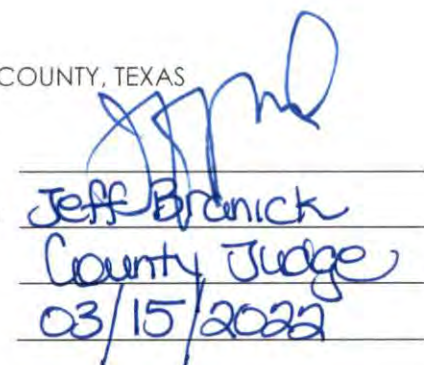 COUNTY, TEXAS
Jeff Branick
County Judge
03/15/2022